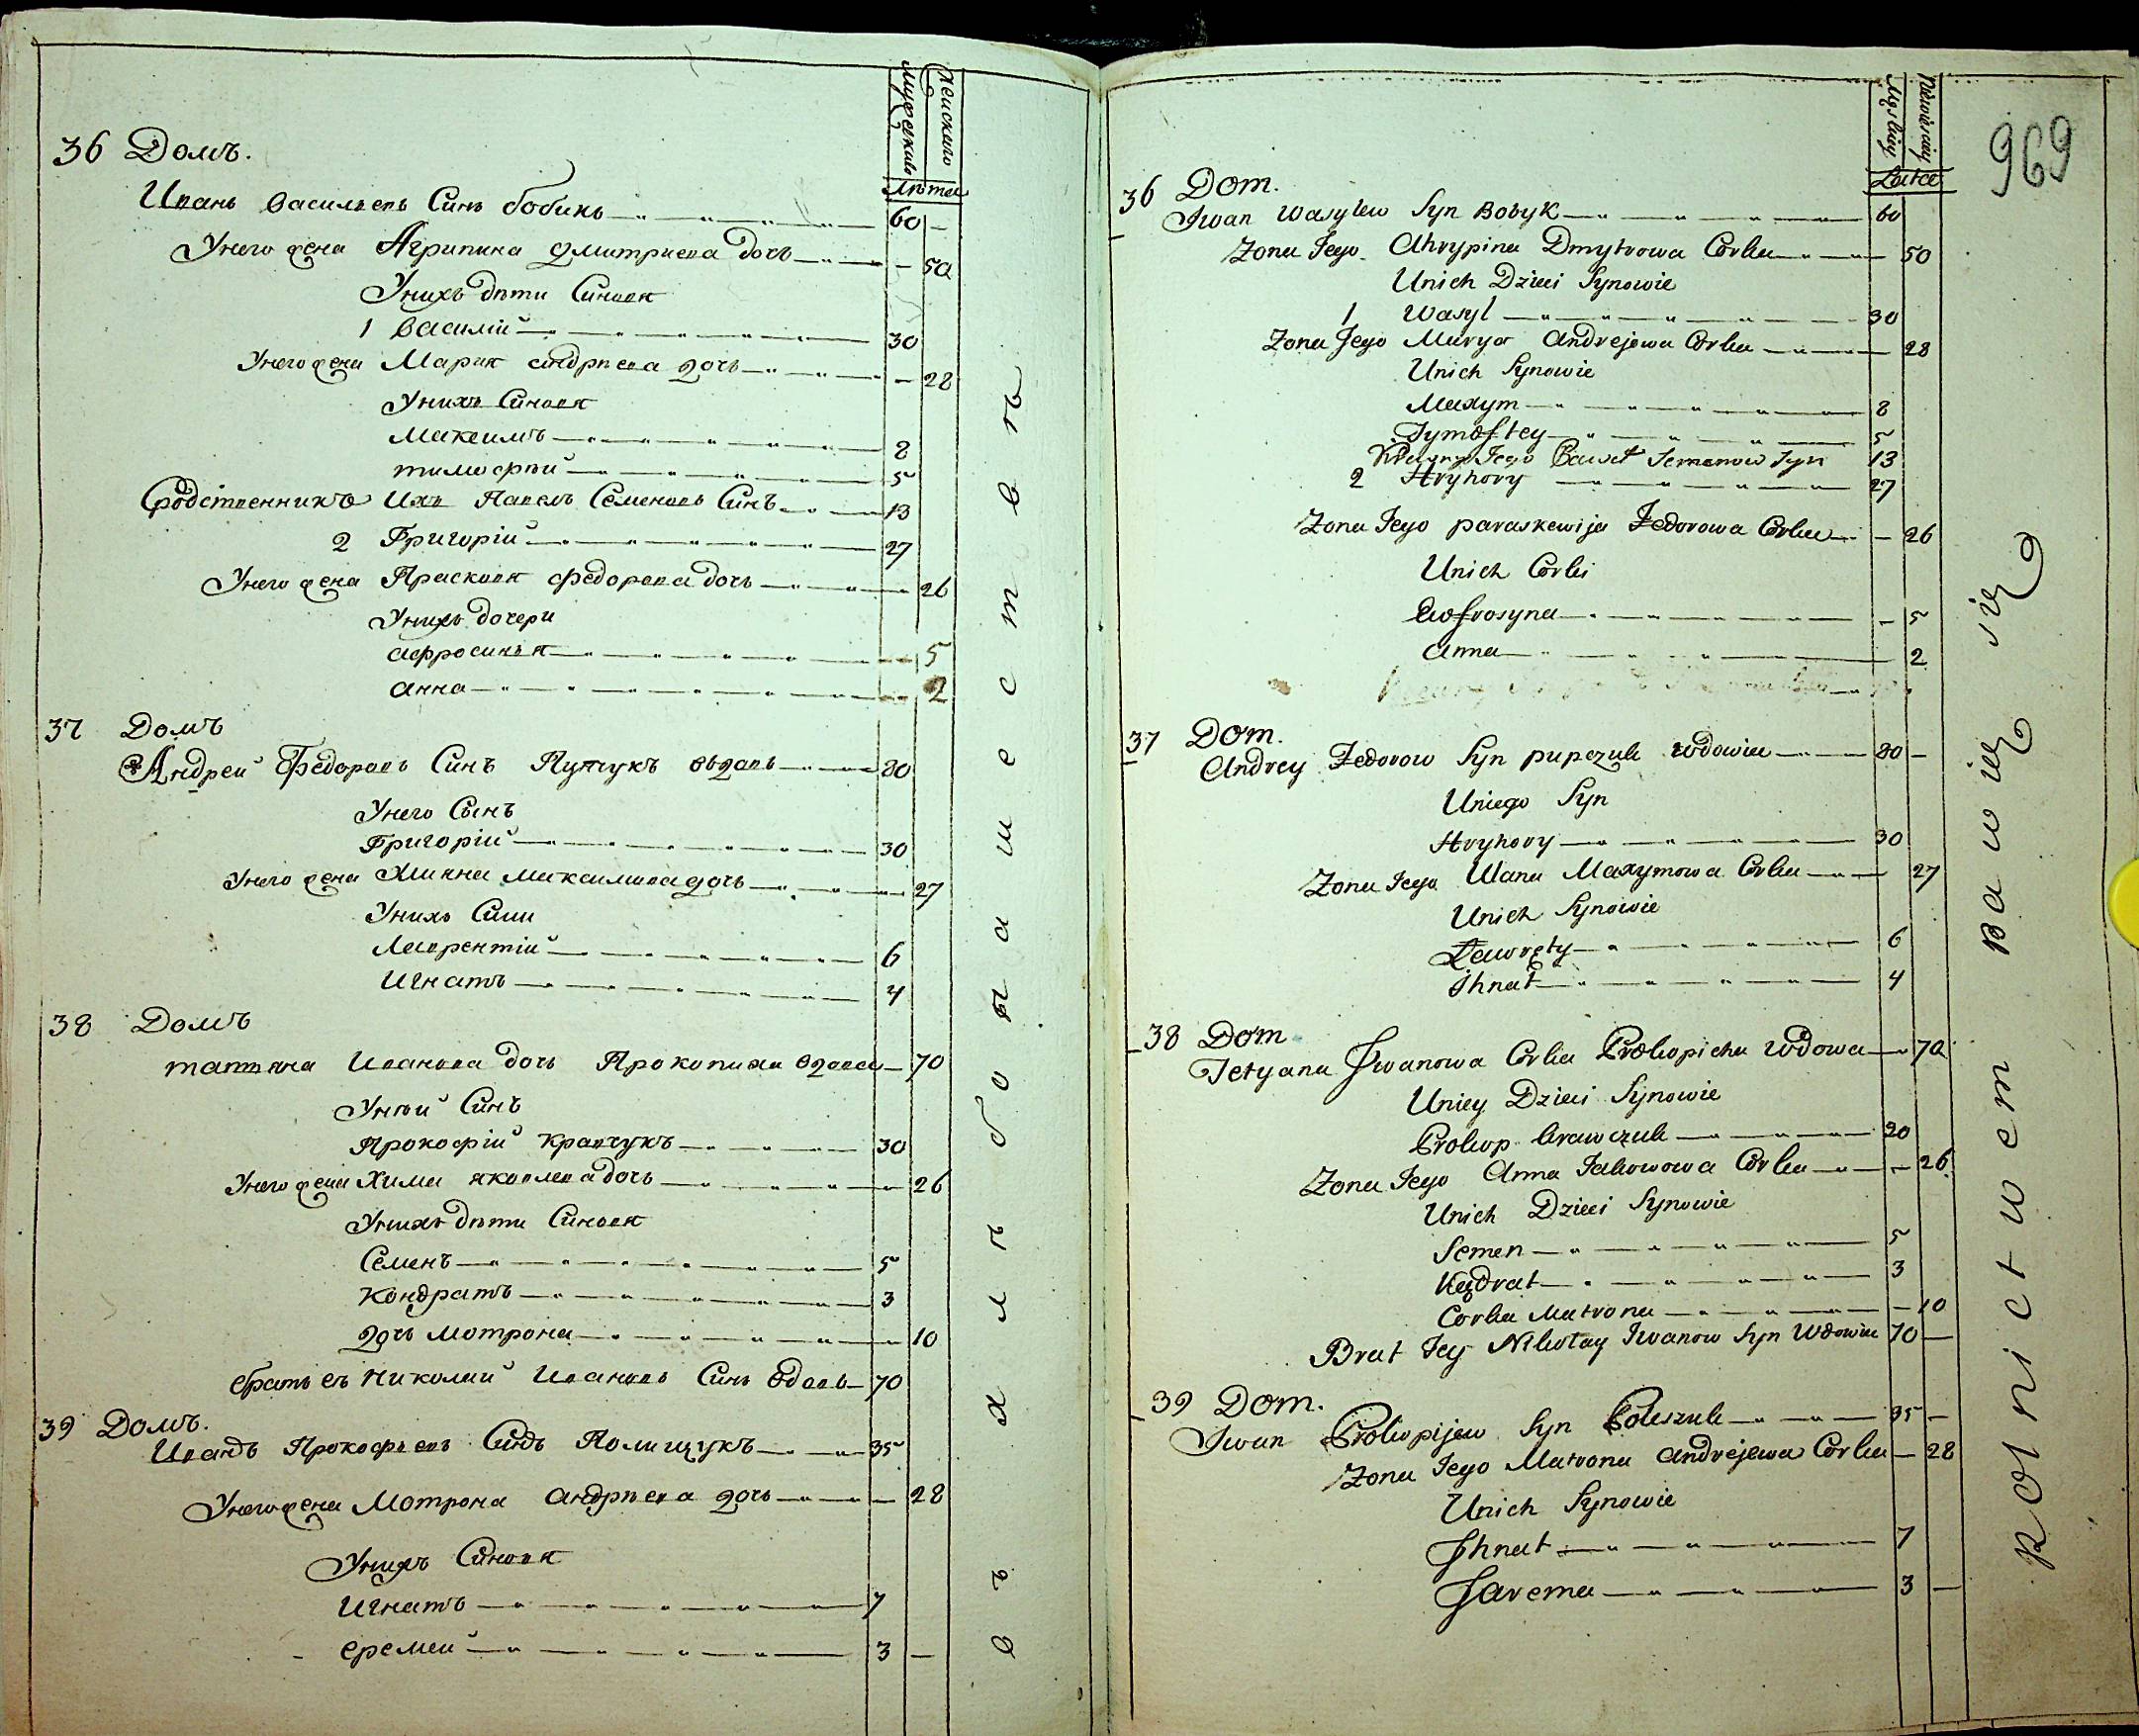 Мужескаго
Женскаго
Лѣта
36 Домъ.
Иванъ Васильевъ Синъ бобикъ 60 —
Унего жена Агрипина Дмитриева дочь — 50
Унихъ дѣти Синовя
1 Василій 30
Унего жена Мария андрѣева дочь — 28
Унихъ Синовя
Максимъ 8
тимофѣй 5
Сродственникъ Ихъ Павелъ Семеновъ Синъ 13
2 Григорій 27
Унего жена Прасковя федорова дочь — 26
Унихъ дочери
афросиния 5
анна 2
37 Домъ
Андрей Федоровъ Синъ Пупчукъ вдовъ 80
Унего Сынъ
Григорій 30
Унего жена Улияна максимова дочь 27
Унихъ Сини
Лаврентій 6
Игнатъ 4
38 Домъ
татяна Иванова дочь Прокопиха вдова — 70
Унѣй Синъ
Прокофій кравчукъ 30
Унего жена Химя яковлева дочь 26
Унихъ дѣти Синовя
Семенъ 5
кондратъ 3
дочь мотрона 10
братъ еѣ Николай Ивановъ Синъ вдовъ 70
39 Домъ.
Иванъ Прокофьевъ Синъ Полищукъ 35
Унего жена Мотрона андрѣева дочь — 28
Унихъ Синовя
Игнатъ 7
еремей 3 —
въ хлѣбопашествѣ
969
Męskiey
Niewieściey
Latae
36 Dom.
Iwan Wasylew Syn Bobyk 60
Zona Jego Ahrypina Dmytrowa Corka 50
Unich Dzieci Synowie
1 Wasyl 30
Zona Jego Marya Andrejowa Corka 28
Unich Synowie
Maxym 8
Tymoftey 5
Krewny Jego Paweł Semenow Syn 13
2 Hryhory 27
Zona Jego paraskewija Fedorowa Corka — 26
Unich Corki
Ewfrosyna — 5
Anna 2
37 Dom.
Andrey Fedorow Syn pupczuk wdowiec 80 —
Uniego Syn
Hryhory 30
Zona Jego Ulana Maxymowa Corka 27
Unich Synowie
Ławręty 6
Ihnat 4
38 Dom
Tetyana Iwanowa Corka Prokopicha Wdowa 70
Uniey Dzieci Synowie
Prokop krawczuk 20
Zona Jego Anna Jakowowa Corka — 26
Unich Dzieci Synowie
Semen 5
Kądrat 3
Corka Matrona — 10
Brat Jey Nikołay Iwanow Syn Wdowiec 70 —
39 Dom.
Iwan Prokopijew Syn Poleszuk 35 —
Zona Jego Matrona Andrejewa Corka — 28
Unich Synowie
Ihnat 7
Jarema 3 —
Rolnictwem Bawię się